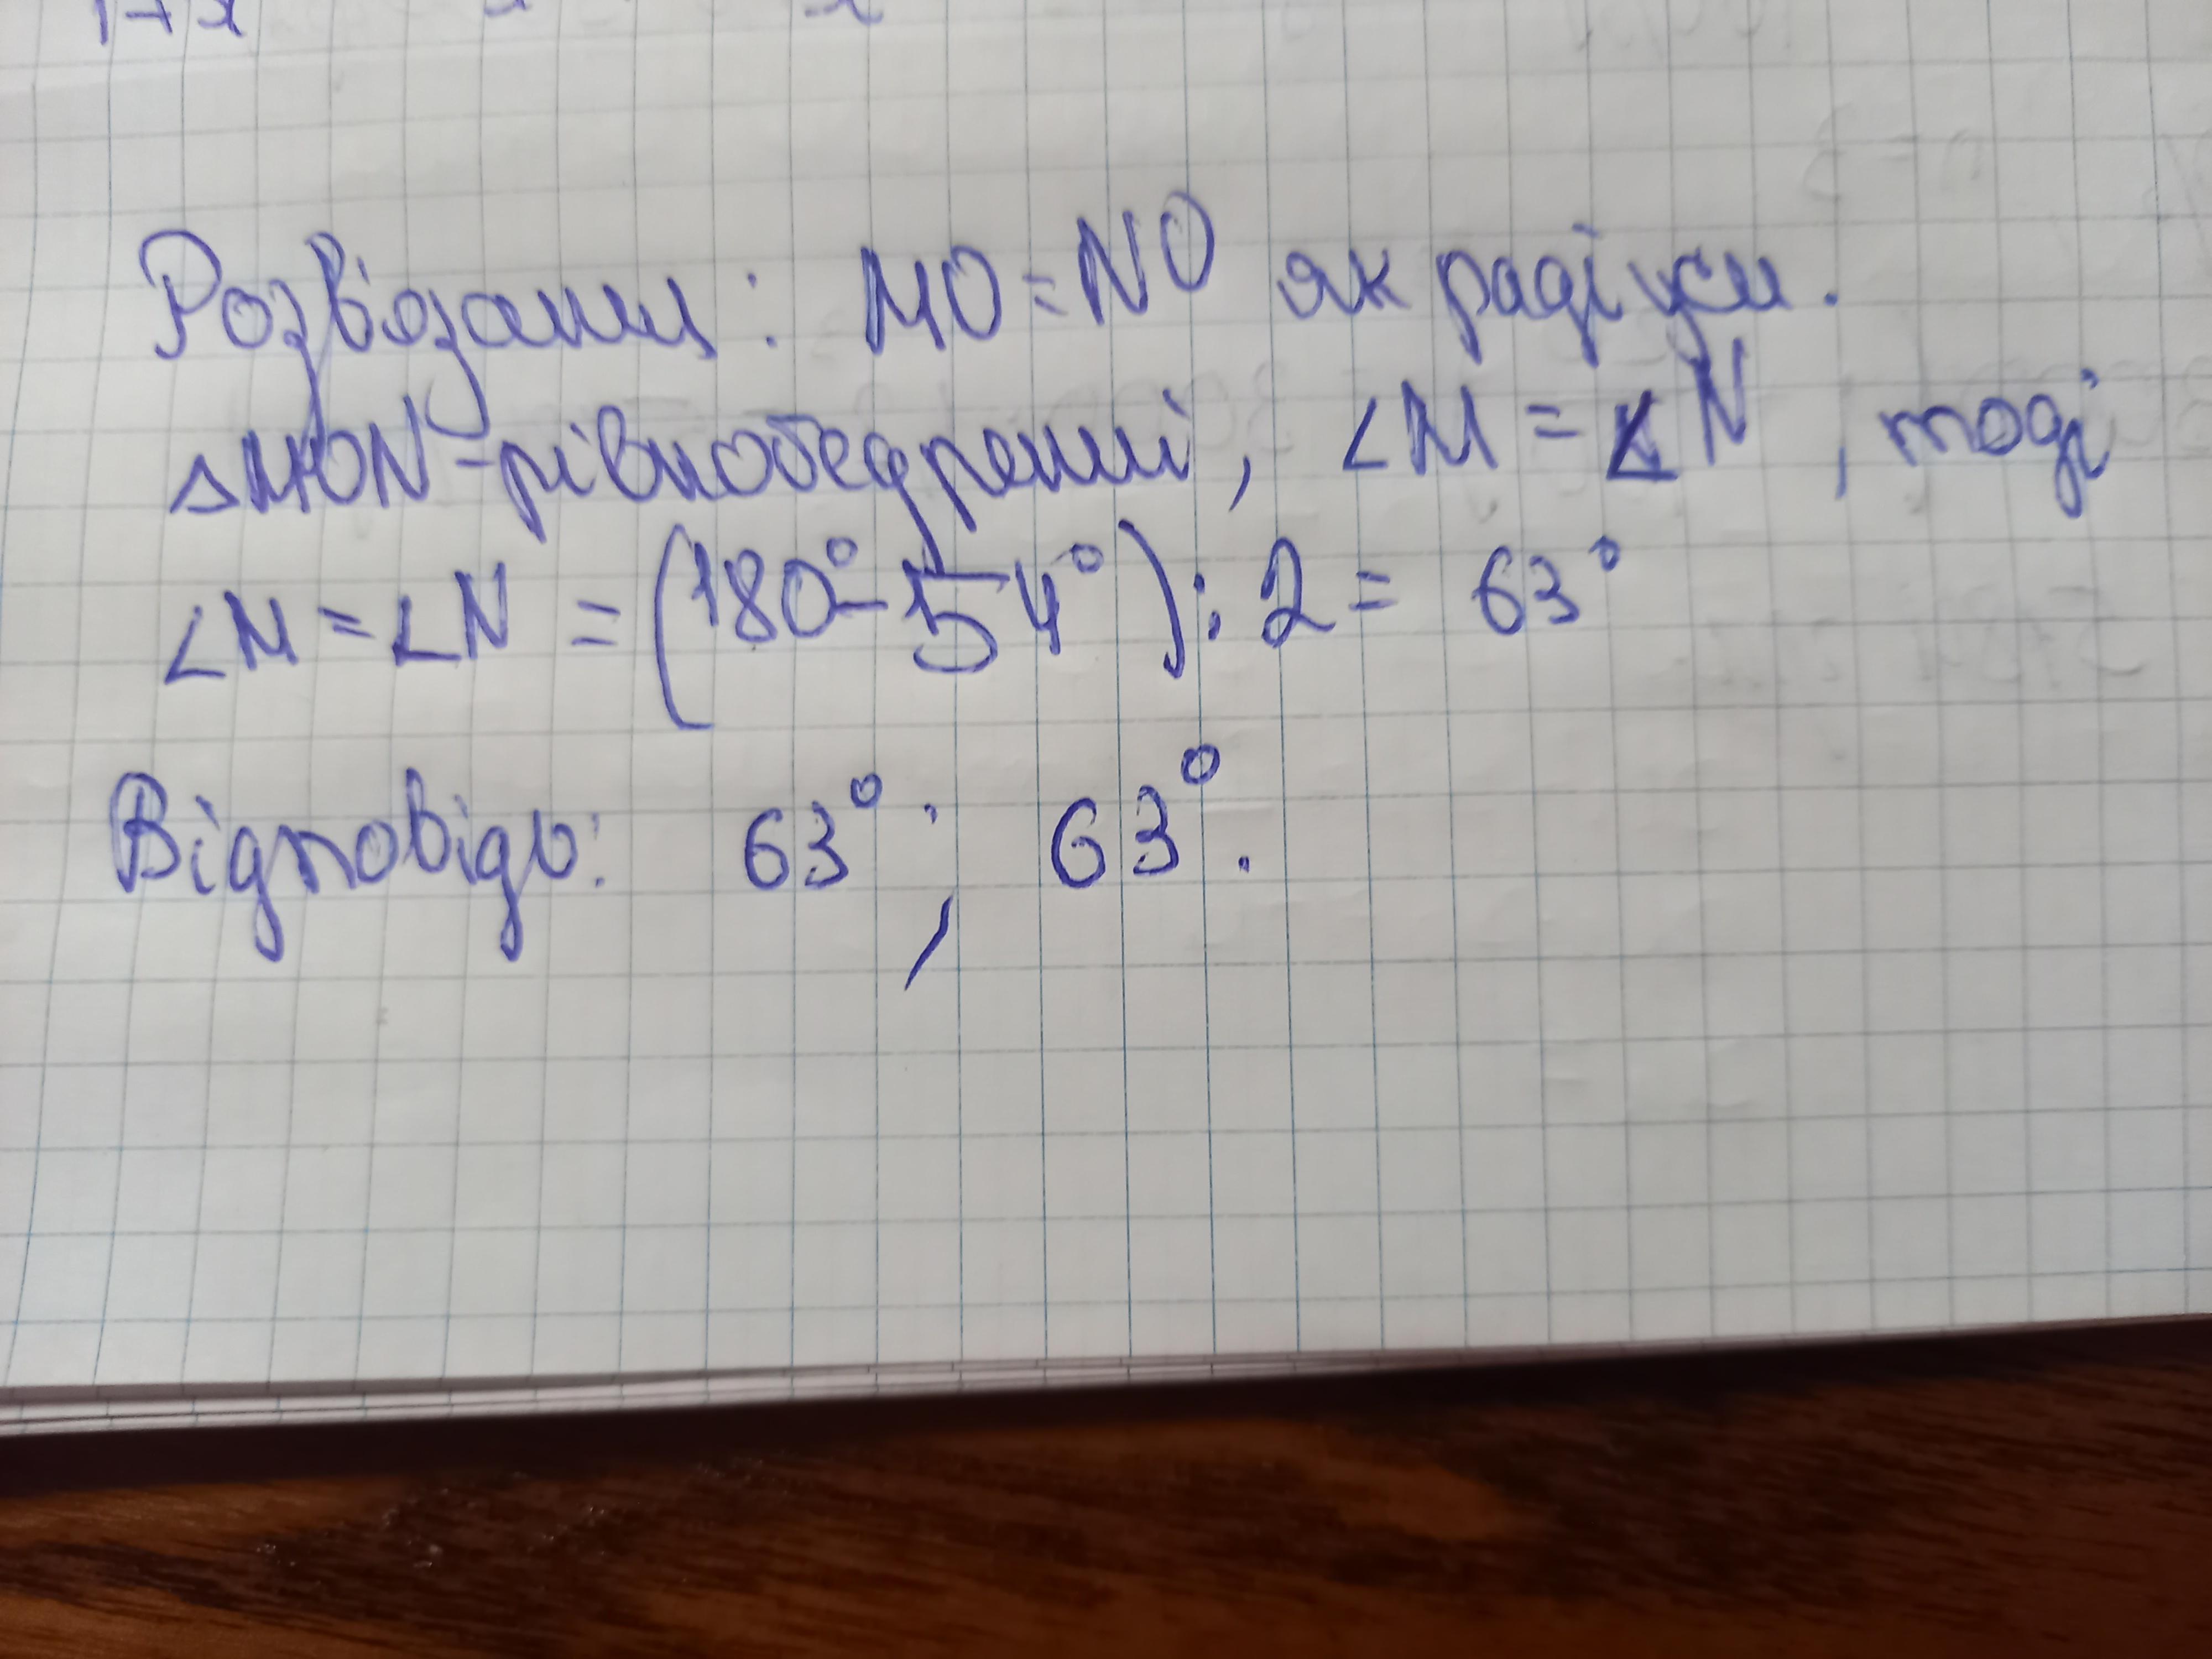 Розв'язання: MO = NO як радіуси.
△MON - рівнобедрений, ∠M = ∠N, тоді
∠M = ∠N = (180° - 54°) : 2 = 63°
Відповідь: 63°; 63°.